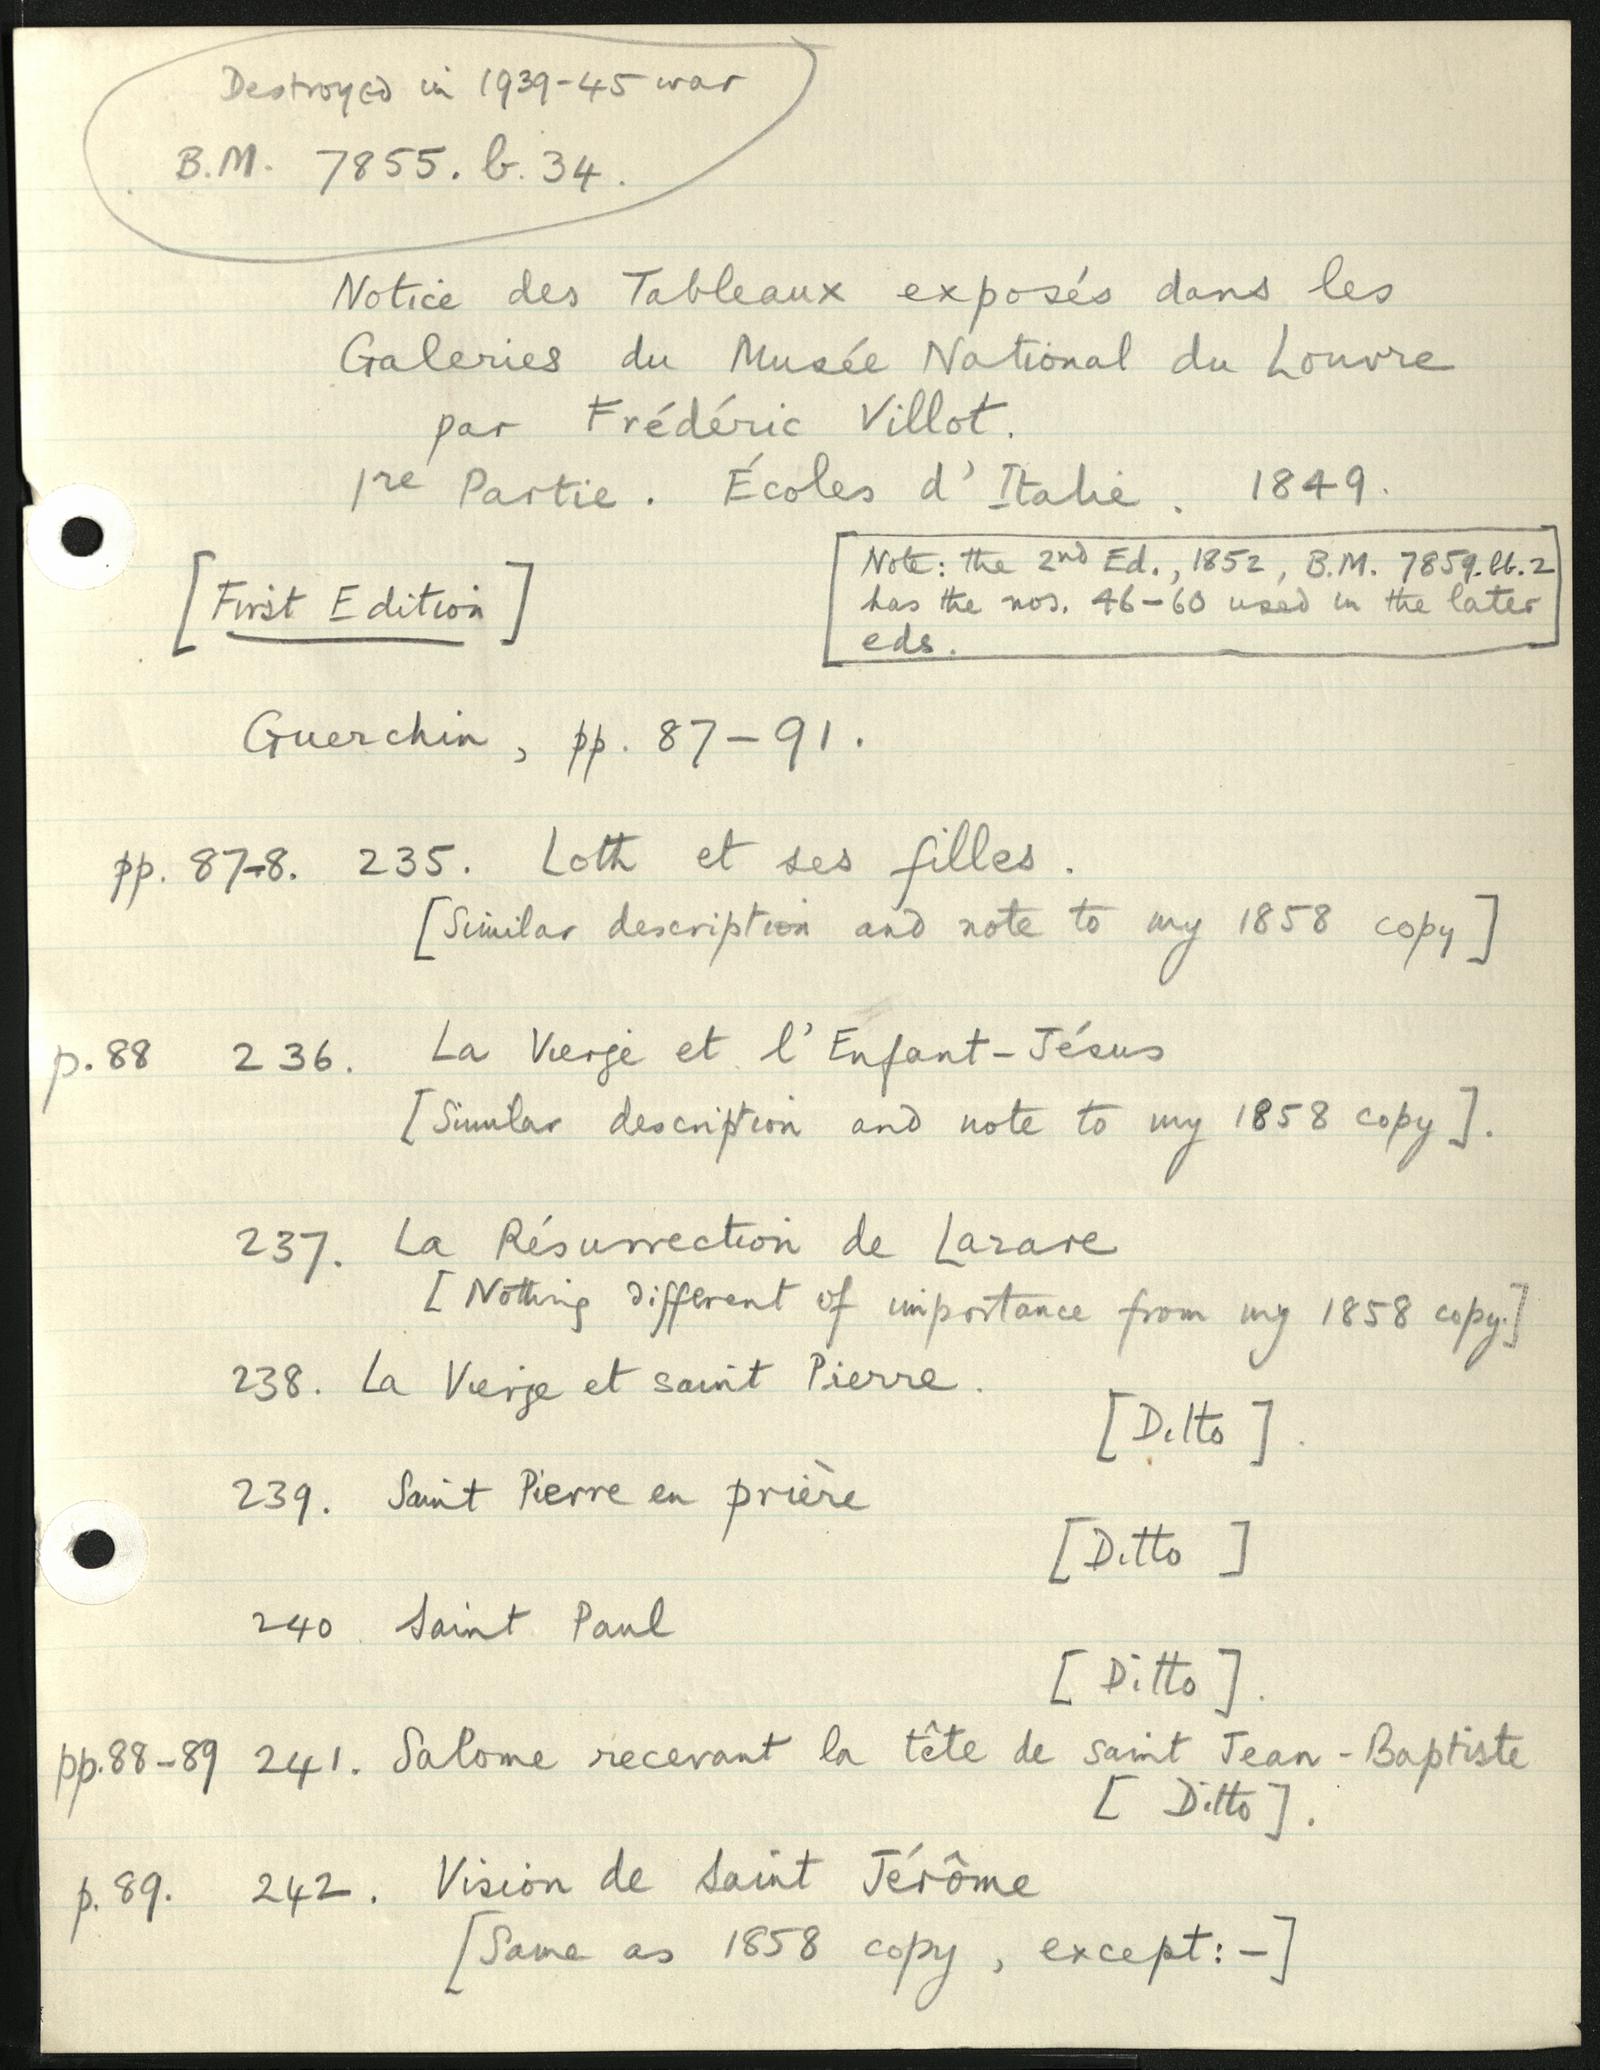 Destroyed in 1939-45 war
B.M. 7855. b. 34.
Notice des Tableaux exposés dans les
Galeries du Musée National du Louvre
par Frédéric Villot.
1re Partie. Écoles d'Italie. 1849.
[First Edition]
Note: the 2nd Ed., 1852, B.M. 7859.bb.2
has the nos. 46-60 used in the later
eds.
Guerchin, pp. 87-91.
pp. 87-8. 235. Loth et ses filles.
[Similar description and note to my 1858 copy]
p. 88 236. La Vierge et l'Enfant-Jésus
[Similar description and note to my 1858 copy].
237. La Résurrection de Lazare
[Nothing different of importance from my 1858 copy.]
238. La Vierge et saint Pierre.
[Ditto].
239. Saint Pierre en prière
[Ditto]
240 Saint Paul
[Ditto].
pp. 88-89 241. Salome recevant la tête de saint Jean-Baptiste
[Ditto].
p. 89. 242. Vision de Saint Jérôme
[Same as 1858 copy, except:-]